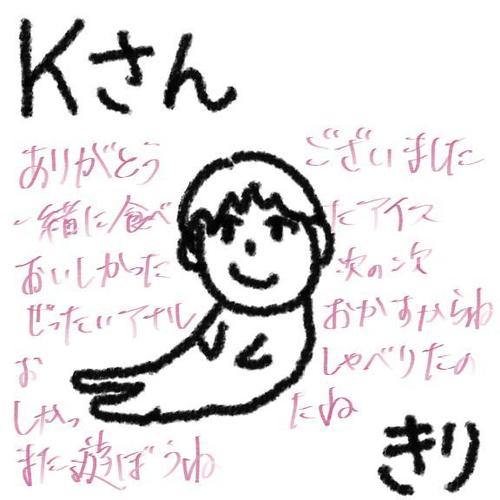 Kさん
ありがとう ございました
一緒に食べ たアイス
おいしかった 次の次
ぜったいアナル おかすからね
お しゃべりたの
しゃっ たね
また遊ぼうね
きり